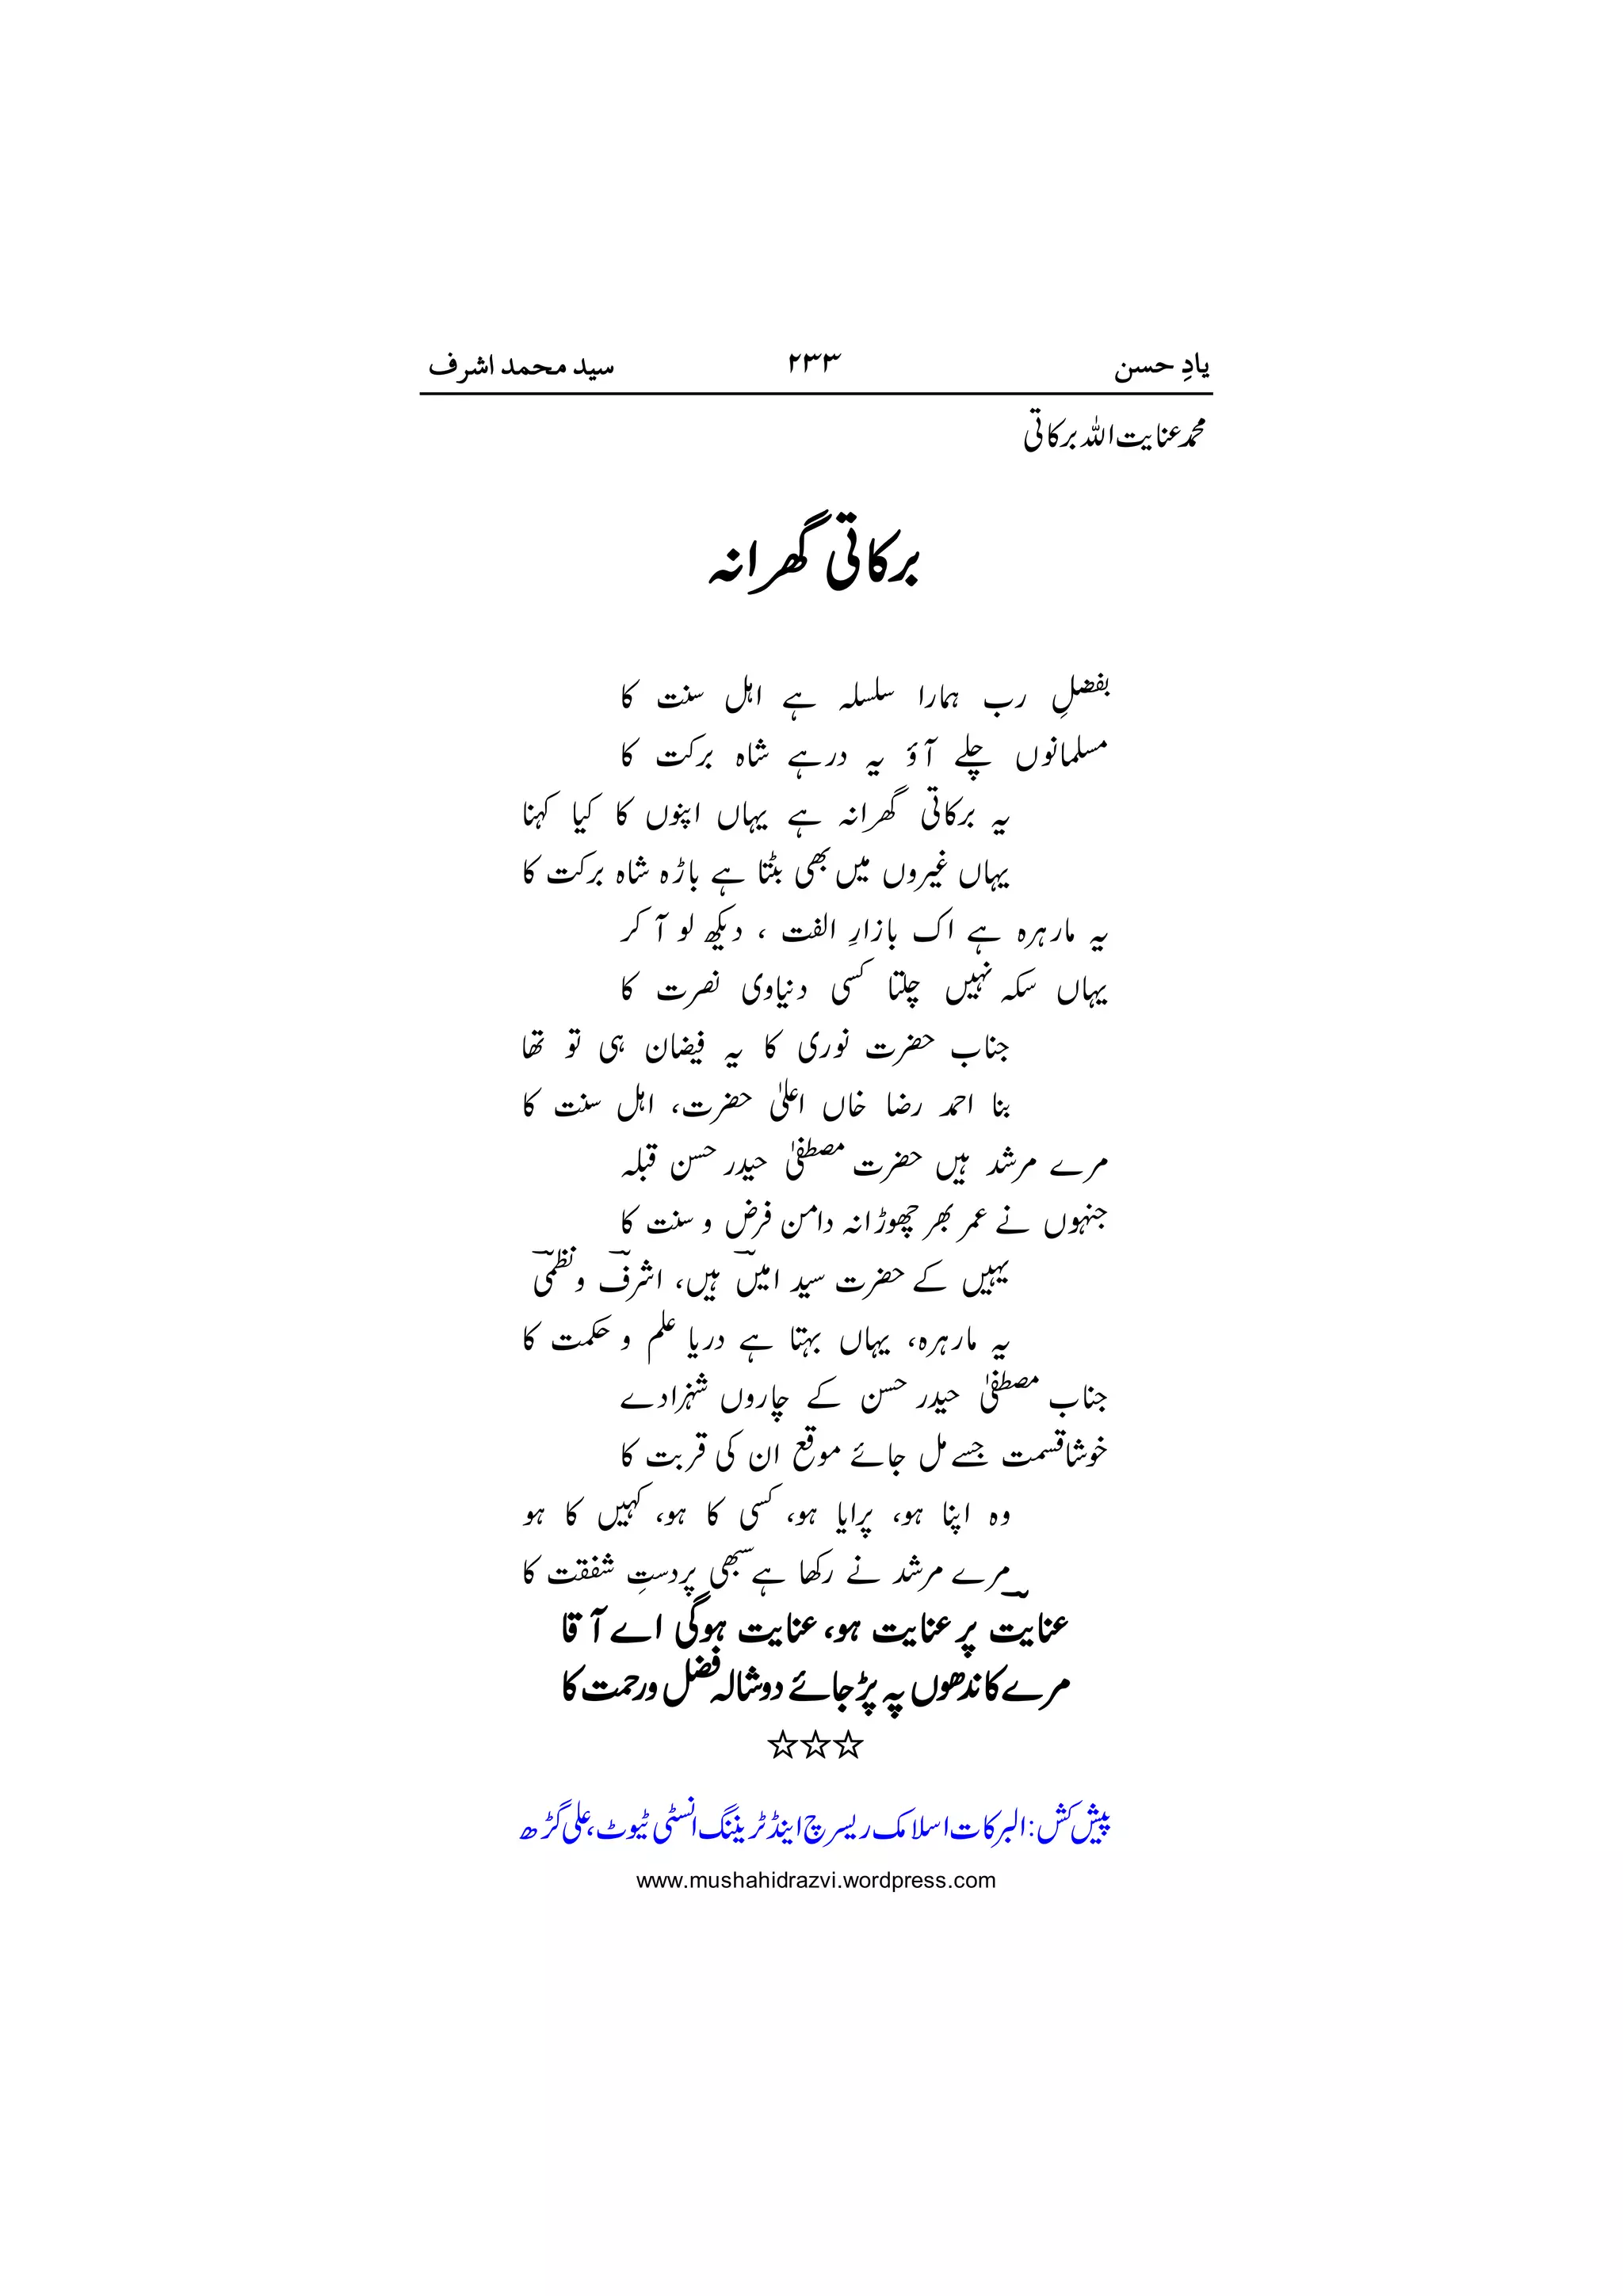 یادِ حسن ۲۳۳ سید محمد اشرف
محمد عنایت اللہ برکاتی
برکاتی گھرانہ
بفضلِ رب ہمارا سلسلہ ہے اہل سنت کا
مسلمانوں چلے آؤ یہ درہے شاہ برکت کا
یہ برکاتی گھرانہ ہے یہاں اپنوں کا ایک کہنا
یہاں غیروں میں بھی بٹتا ہے باڑہ شاہ برکت کا
یہ مارہرہ ہے اک بازارِ الفت ، دیکھ لو آ کر
یہاں سکہ نہیں چلتا کسی دنیاوی نصرت کا
جناب حضرت نوری کا یہ فیضان ہی تو تھا
بنا احمد رضا خاں اعلیٰ حضرت، اہل سنت کا
مرے مرشد ہیں حضرت مصطفیٰ حیدر حسن قبلہ
جنہوں نے عمر بھر چھوڑانہ دامن فرض و سنت کا
یہیں کے حضرت سید امیںؔ ہیں، اشرفؔ و نظمیؔ
یہ مارہرہ، یہاں بہتا ہے دریا علم و حکمت کا
جناب مصطفیٰ حیدر حسن کے چاروں شہزادے
خوشاقسمت جسے مل جائے موقع ان کی قربت کا
وہ اپنا ہو، پرایا ہو، کسی کا ہو، کہیں کا ہو
مرے مرشد نے رکھا ہے سبھی پردستِ شفقت کا
عنایت پر عنایت ہو، عنایت ہوگی اے آقا
مرے کاندھوں پہ پڑجائے دوشالہ فضل ورحمت کا
☆☆☆
پیش کش: البرکات اسلامک ریسرچ اینڈ ٹریننگ انسٹی ٹیوٹ، علی گڑھ
www.mushahidrazvi.wordpress.com